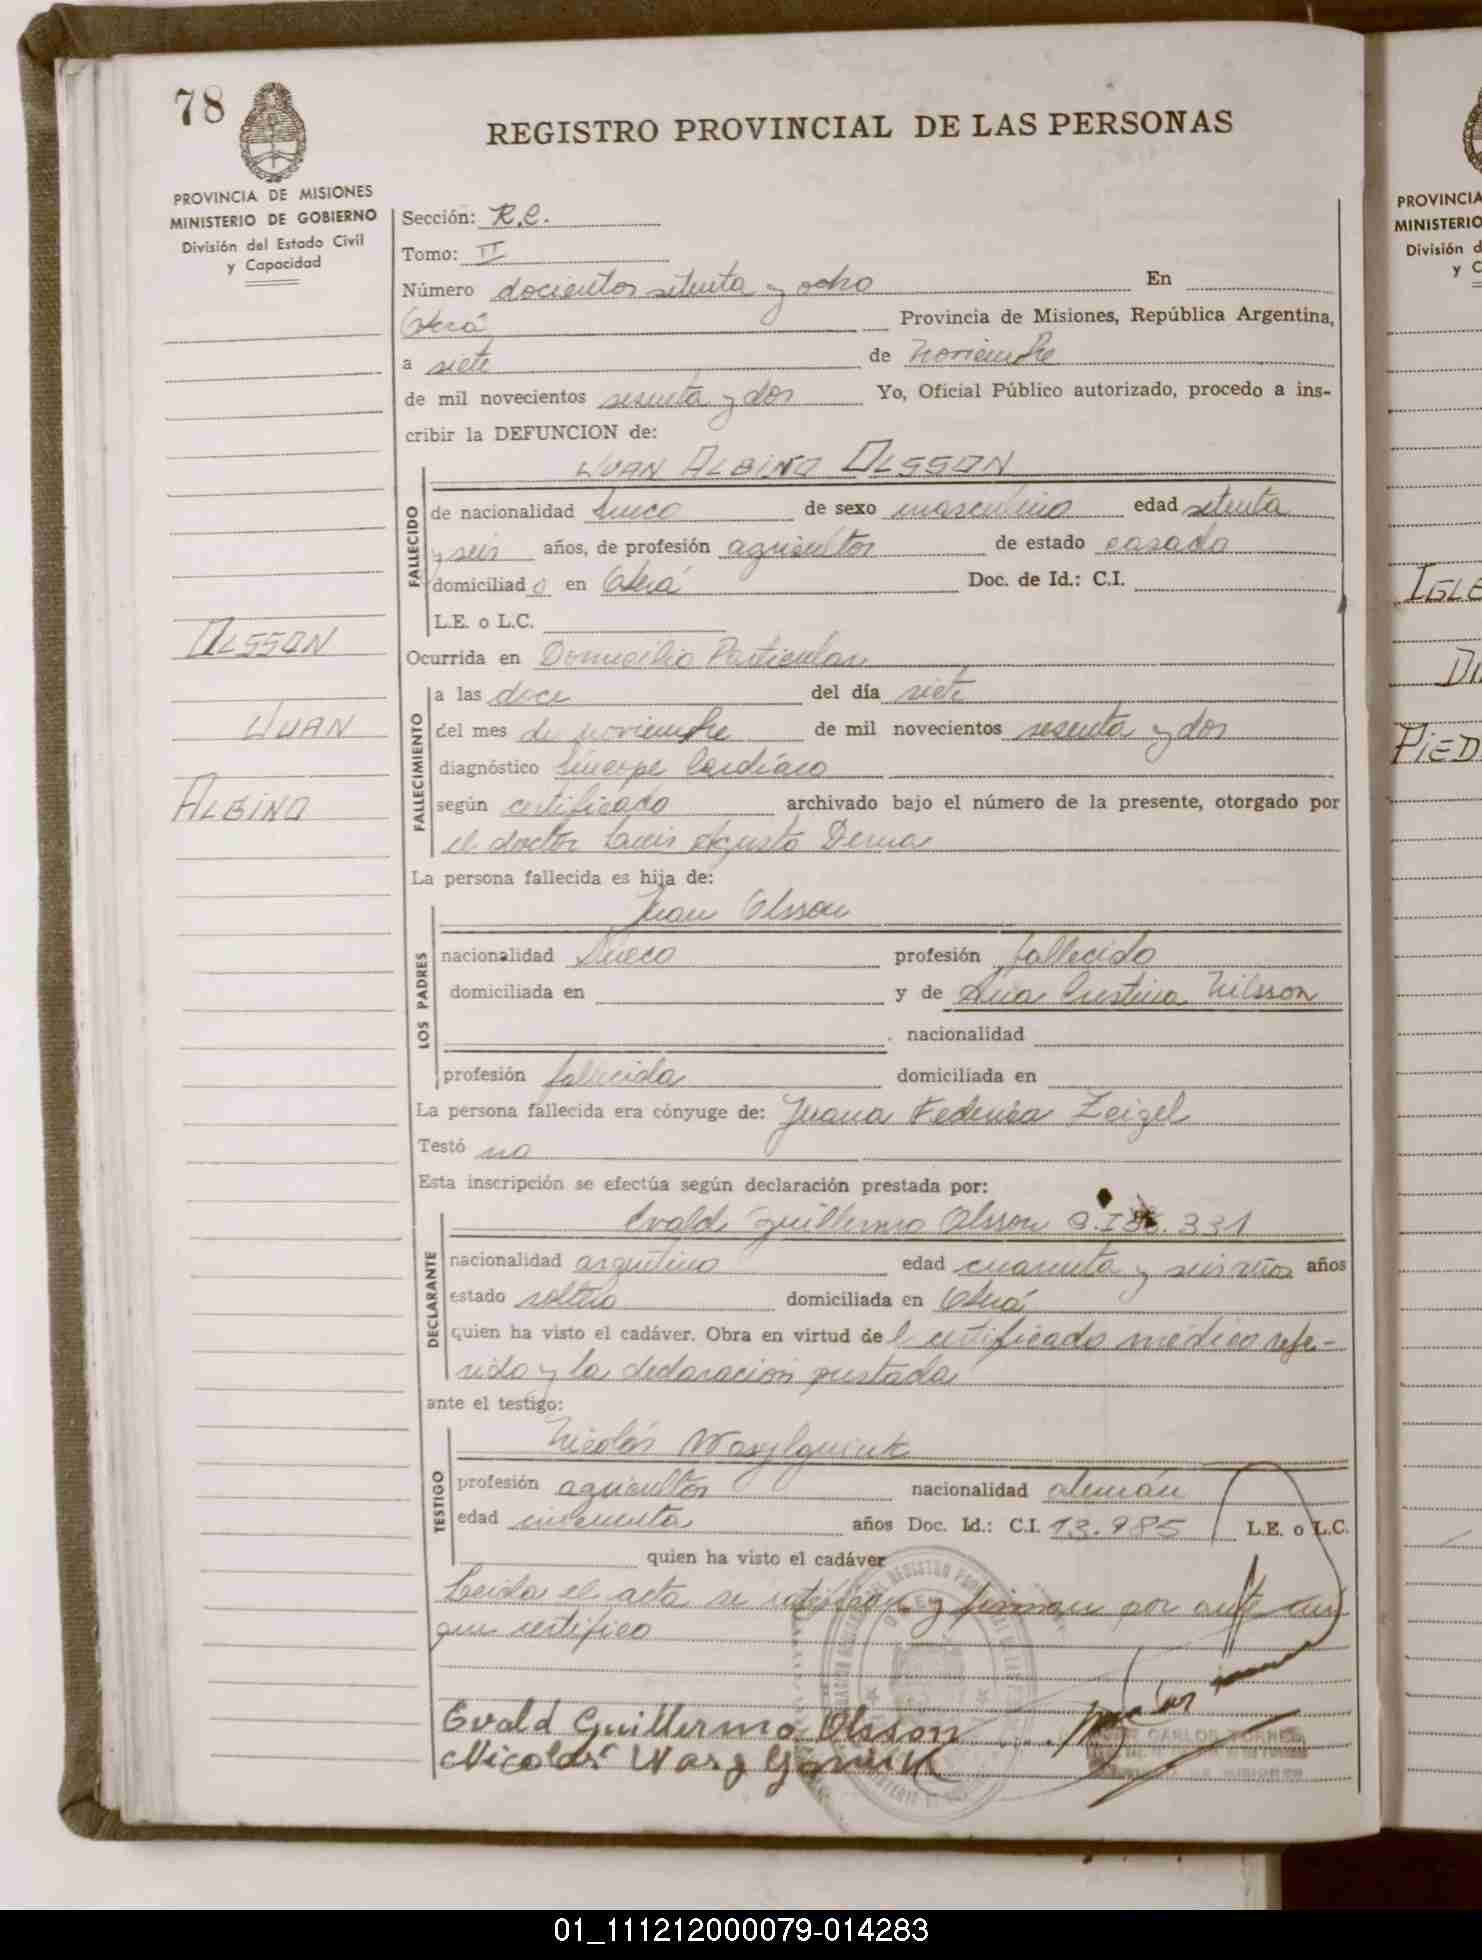 78
REGISTRO PROVINCIAL DE LAS PERSONAS
PROVINCIA DE MISIONES
MINISTERIO DE GOBIERNO
División del Estado Civil
y Capacidad
Sección: R.C.
Tomo: II
Número docientos setenta y ocho En
Oberá Provincia de Misiones, República Argentina,
a siete de Noviembre
de mil novecientos sesenta y dos Yo, Oficial Público autorizado, procedo a ins-
cribir la DEFUNCION de:
JUAN ALBINO OLSSON
FALLECIDO
de nacionalidad Sueco de sexo masculino edad setenta
y seis años, de profesión agricultor de estado casado
domiciliado en Oberá Doc. de Id.: C.I.
L.E. o L.C.
OLSSON
JUAN
ALBINO
Ocurrida en Domicilio Particular
FALLECIMIENTO
a las doce del día siete
del mes de noviembre de mil novecientos sesenta y dos
diagnóstico Síncope Cardíaco
según certificado archivado bajo el número de la presente, otorgado por
el doctor Luis Agusto Derna
La persona fallecida es hija de:
LOS PADRES
Juan Olsson
nacionalidad Sueco profesión fallecido
domiciliada en y de Ana Cristina Nilsson
nacionalidad
profesión fallecida domiciliada en
La persona fallecida era cónyuge de: Juana Federica Zeigel
Testó no
Esta inscripción se efectúa según declaración prestada por:
DECLARANTE
Evald Guillermo Olsson C.I. 331
nacionalidad argentino edad cuarenta y seis años años
estado soltero domiciliada en Oberá
quien ha visto el cadáver. Obra en virtud del certificado médico refe-
rido y la declaración prestada
ante el testigo:
TESTIGO
Nicolás
profesión agricultor nacionalidad alemán
edad cincuenta años Doc. Id.: C.I. 13.985 L.E. o L.C.
quien ha visto el cadáver
Leida el acta se ratifican y firman por ante mi
que certifico
Evald Guillermo Olsson
Nicolás
CARLOS TORRES
PROVINCIA
MINISTERIO
División d
y C
IGLE
DI
PIED
01_111212000079-014283